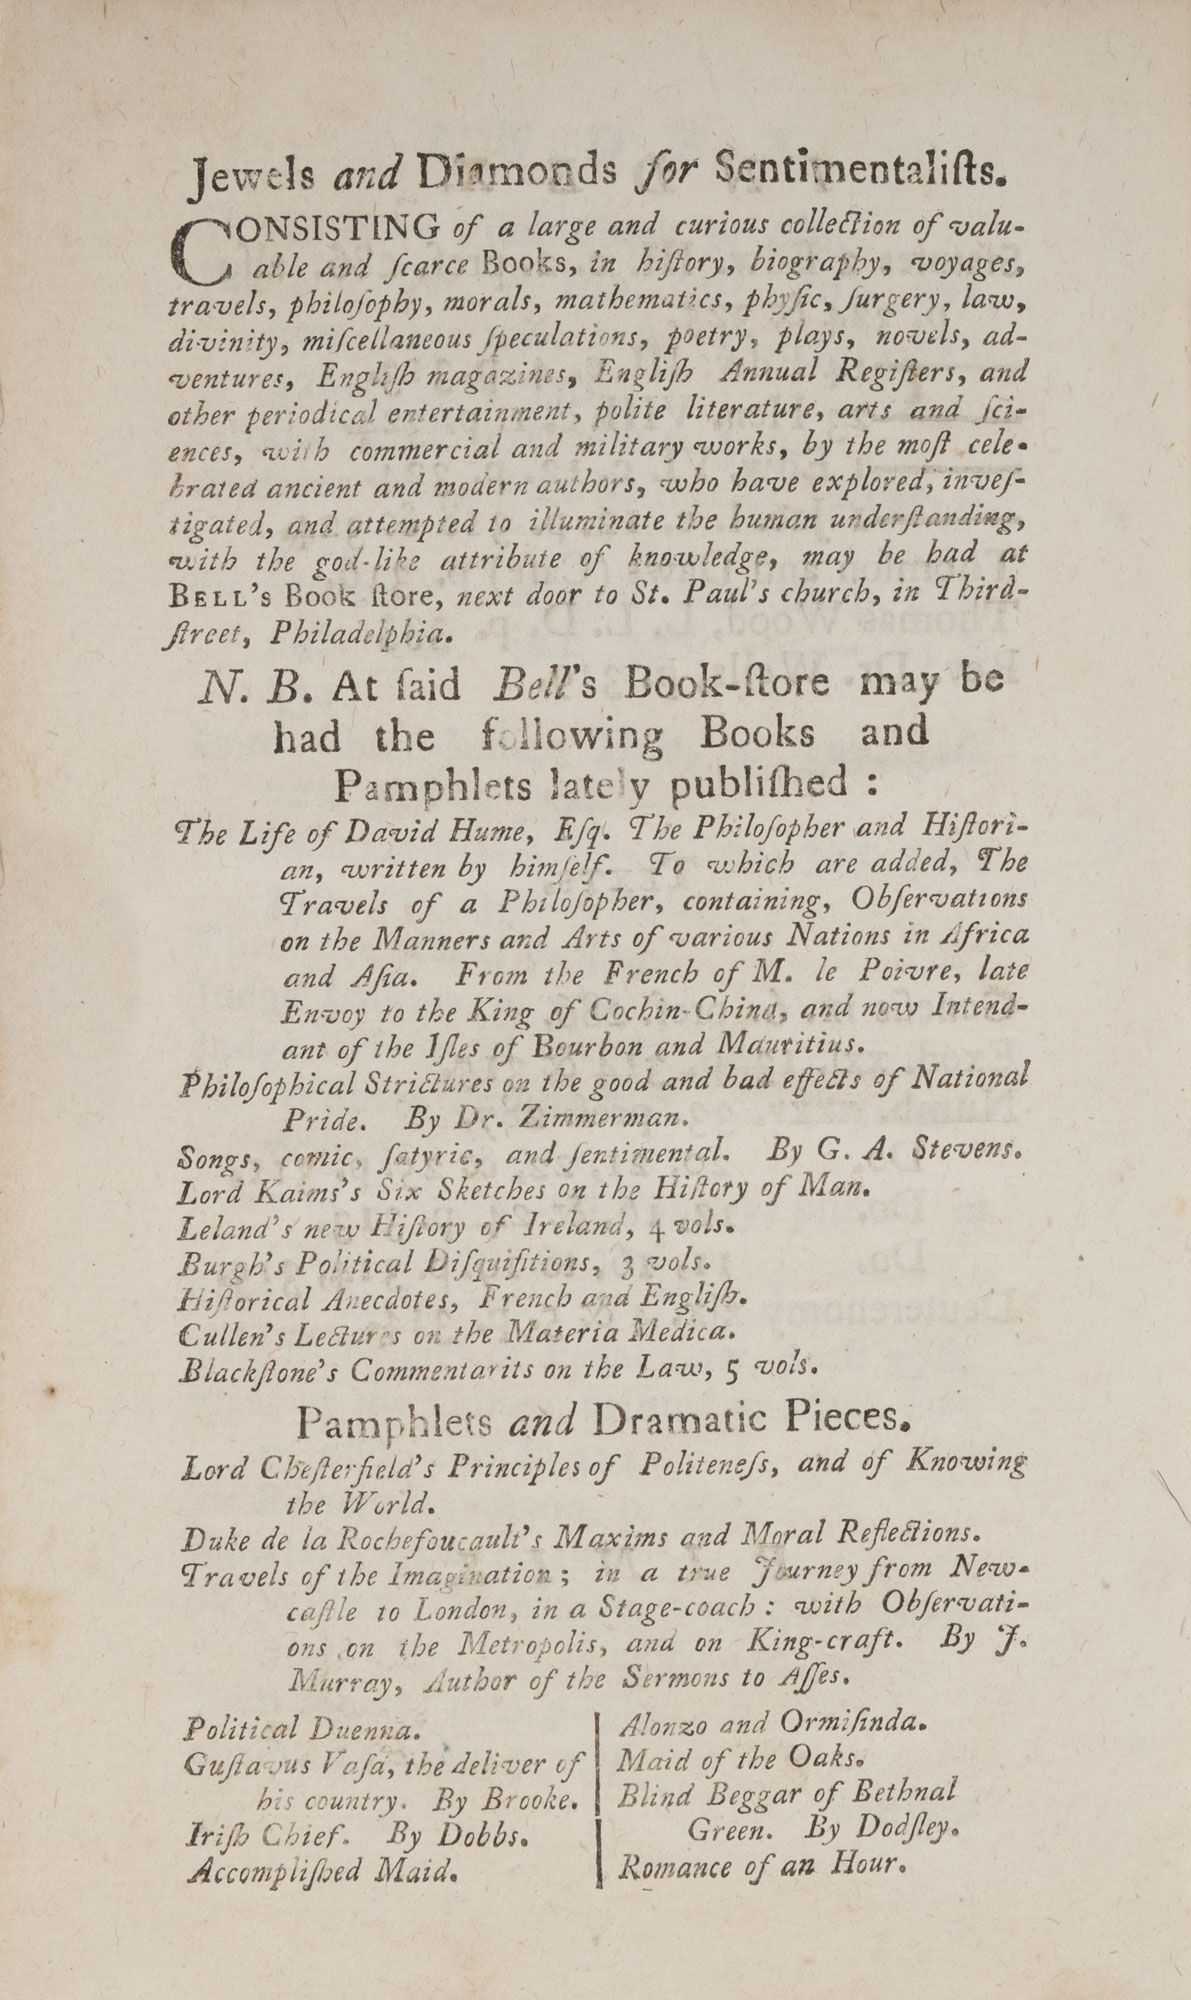 Jewels and Diamonds for Sentimentaliſts.
CONSISTING of a large and curious collection of valu-
able and ſcarce Books, in hiſtory, biography, voyages,
travels, philoſophy, morals, mathematics, phyſic, ſurgery, law,
divinity, miſcellaneous ſpeculations, poetry, plays, novels, ad-
ventures, Engliſh magazines, Engliſh Annual Regiſters, and
other periodical entertainment, polite literature, arts and ſci-
ences, with commercial and military works, by the moſt cele-
brated ancient and modern authors, who have explored, inveſ-
tigated, and attempted to illuminate the human underſtanding,
with the god-like attribute of knowledge, may be had at
BELL's Book ſtore, next door to St. Paul's church, in Third-
ſtreet, Philadelphia.
N. B. At ſaid Bell's Book-ſtore may be
had the following Books and
Pamphlets lately publiſhed :
The Life of David Hume, Eſq. The Philoſopher and Hiſtori-
an, written by himſelf. To which are added, The
Travels of a Philoſopher, containing, Obſervations
on the Manners and Arts of various Nations in Africa
and Aſia. From the French of M. le Poivre, late
Envoy to the King of Cochin-China, and now Intend-
ant of the Iſles of Bourbon and Mauritius.
Philoſophical Strictures on the good and bad effects of National
Pride. By Dr. Zimmerman.
Songs, comic, ſatyric, and ſentimental. By G. A. Stevens.
Lord Kaims's Six Sketches on the Hiſtory of Man.
Leland's new Hiſtory of Ireland, 4 vols.
Burgh's Political Diſquiſitions, 3 vols.
Hiſtorical Anecdotes, French and Engliſh.
Cullen's Lectures on the Materia Medica.
Blackſtone's Commentarits on the Law, 5 vols.
Pamphlets and Dramatic Pieces.
Lord Cheſterfield's Principles of Politeneſs, and of Knowing
the World.
Duke de la Rochefoucault's Maxims and Moral Reflections.
Travels of the Imagination; in a true Journey from New-
caſtle to London, in a Stage-coach : with Obſervati-
ons on the Metropolis, and on King-craft. By J.
Murray, Author of the Sermons to Aſſes.
Political Duenna.
Guſtavus Vaſa, the deliver of
his country. By Brooke.
Iriſh Chief. By Dobbs.
Accompliſhed Maid.
Alonzo and Ormiſinda.
Maid of the Oaks.
Blind Beggar of Bethnal
Green. By Dodſley.
Romance of an Hour.